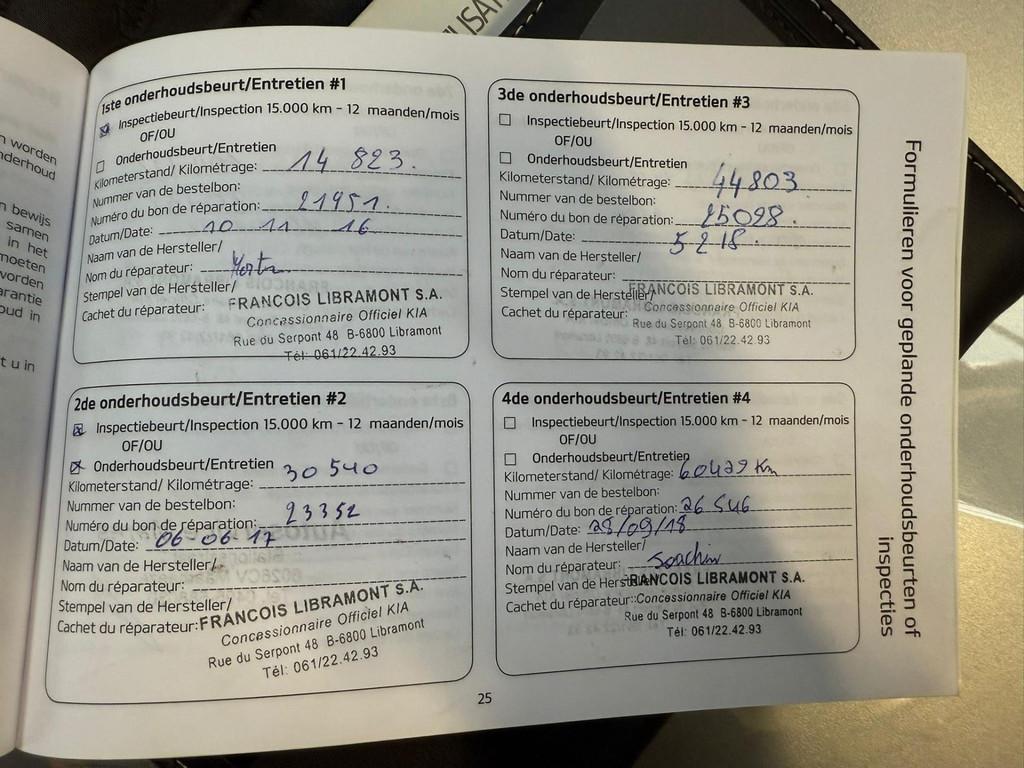 USA
n worden
nderhoud
n bewijs
samen
in het
moeten
vorden
arantie
oud in
t u in
1ste onderhoudsbeurt/Entretien #1
Inspectiebeurt/Inspection 15.000 km - 12 maanden/mois
OF/OU
Onderhoudsbeurt/Entretien
Kilometerstand/ Kilométrage: 14 823.
Nummer van de bestelbon:
Numéro du bon de réparation: 21951.
Datum/Date: 10 11 16
Naam van de Hersteller/
Nom du réparateur:
Stempel van de Hersteller/
Cachet du réparateur: FRANCOIS LIBRAMONT S.A.
Concessionnaire Officiel KIA
Rue du Serpont 48 B-6800 Libramont
Tél: 061/22.42.93
2de onderhoudsbeurt/Entretien #2
Inspectiebeurt/Inspection 15.000 km - 12 maanden/mois
OF/OU
Onderhoudsbeurt/Entretien
Kilometerstand/ Kilométrage: 30 540
Nummer van de bestelbon:
Numéro du bon de réparation: 23352
Datum/Date: 06-06-17
Naam van de Hersteller/
Nom du réparateur:
Stempel van de Hersteller/
Cachet du réparateur: FRANCOIS LIBRAMONT S.A.
Concessionnaire Officiel KIA
Rue du Serpont 48 B-6800 Libramont
Tél: 061/22.42.93
3de onderhoudsbeurt/Entretien #3
Inspectiebeurt/Inspection 15.000 km - 12 maanden/mois
OF/OU
Onderhoudsbeurt/Entretien
Kilometerstand/ Kilométrage: 44803
Nummer van de bestelbon:
Numéro du bon de réparation: 25098.
Datum/Date: 5 2 18.
Naam van de Hersteller/
Nom du réparateur:
Stempel van de Hersteller/ FRANCOIS LIBRAMONT S.A.
Cachet du réparateur: Concessionnaire Officiel KIA
Rue du Serpont 48 B-6800 Libramont
Tél: 061/22.42.93
4de onderhoudsbeurt/Entretien #4
Inspectiebeurt/Inspection 15.000 km - 12 maanden/mois
OF/OU
Onderhoudsbeurt/Entretien
Kilometerstand/ Kilométrage: 60429 Km
Nummer van de bestelbon:
Numéro du bon de réparation: 26 546
Datum/Date: 28/09/18
Naam van de Hersteller/
Nom du réparateur: Joachim
Stempel van de Hersteller/ FRANCOIS LIBRAMONT S.A.
Cachet du réparateur: Concessionnaire Officiel KIA
Rue du Serpont 48 B-6800 Libramont
Tél: 061/22.42.93
25
Formulieren voor geplande onderhoudsbeurten of
inspecties